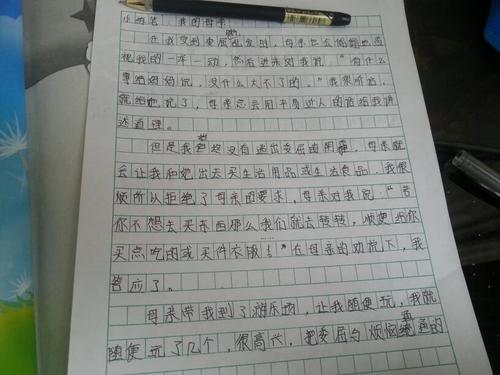 小姓名 我的母亲
在我受到委屈 发时，母亲总会偷偷地注
视我的一举一动，然后进来对我说："有什么
事给妈妈说，没什么大不了的。"我很听话，
就给她说了，母亲总会用平易近人的话给我讲
述道理。
但是我 没有逃出委屈的阴 ，母亲就
会让我和她出去买生活用品或生活食品，我很
烦所以拒绝了母亲的要求，母亲对我说："若
你不想去买东西那么我们就去转转，顺便给你
买点吃的或买件衣服！"在母亲的劝说下，我
答应了。
母亲带我到了游乐场，让我随便玩，我就
随便玩了几个，很高兴，把委屈与烦恼 通的